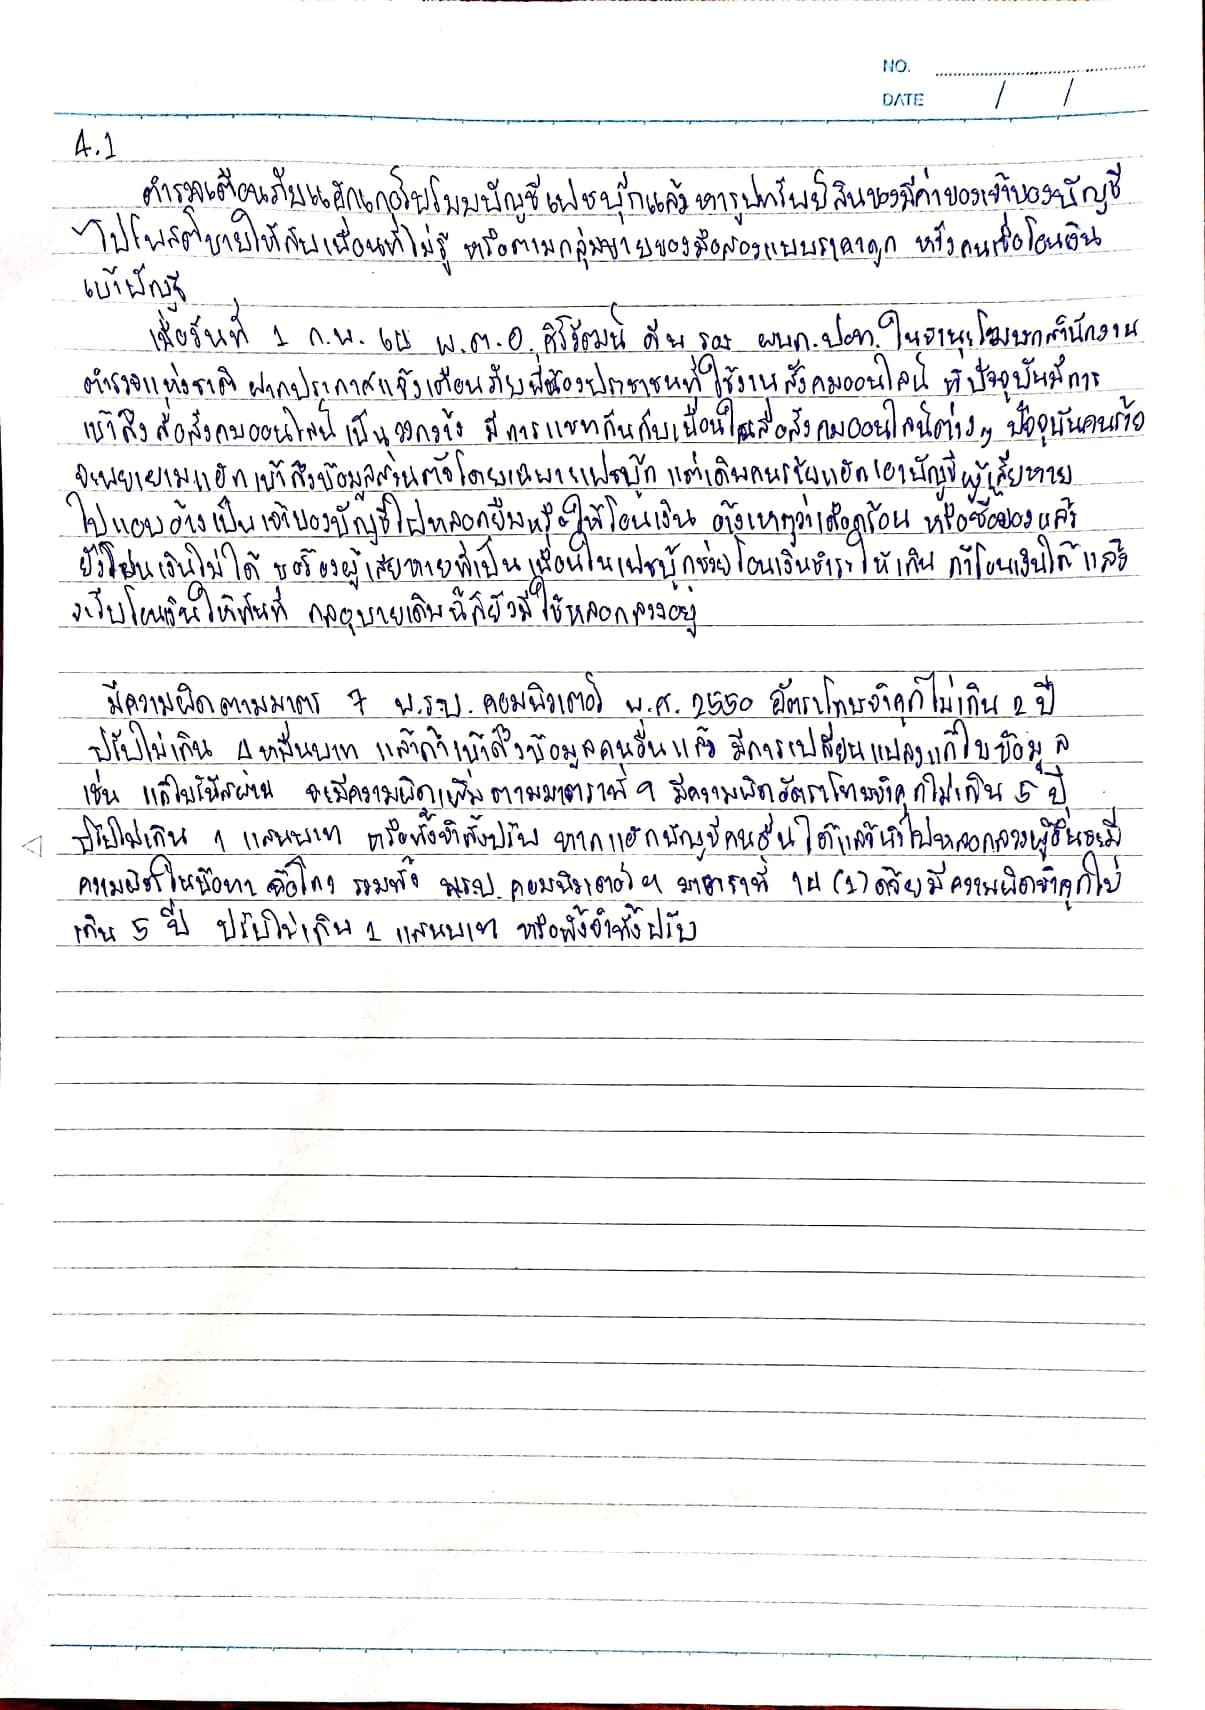 NO.
DATE / /
4.1
ตำรวจเตือนภัยแฮกเกอร์ขโมยบัญชีเฟซบุ๊กแล้วหารูปทรัพย์สินของมีค่าของเจ้าของบัญชี
ไปโพสต์ขายให้กับเพื่อนที่ไม่รู้ หรือตามกลุ่มขายของมือสองแบบราคาถูก หวังคนเชื่อโอนเงิน
เข้าบัญชี
เมื่อวันที่ 1 ก.พ. พ.ต.อ. ศิริวัฒน์ ดีพอ รอง ผบก.ปอท. ในฐานะโฆษกสำนักงาน
ตำรวจแห่งชาติ ฝากประกาศแจ้งเตือนภัยพี่น้องประชาชนที่ใช้งานสังคมออนไลน์ ที่ปัจจุบันมีการ
เข้าถึงสื่อสังคมออนไลน์เป็นวงกว้าง มีการแชทกันกับเพื่อนในสื่อสังคมออนไลน์ต่างๆ ปัจจุบันคนร้าย
จะพยายามแฮกเข้าถึงข้อมูลส่วนตัวโดยเฉพาะเฟซบุ๊ก แต่เดิมคนร้ายแฮกเอาบัญชีผู้เสียหาย
ไปแอบอ้างเป็นเจ้าของบัญชีไปหลอกยืมหรือให้โอนเงิน อ้างเหตุว่าเดือดร้อน หรือซื้อของแล้ว
ยังโอนเงินไม่ได้ ขอร้องผู้เสียหายที่เป็นเพื่อนในเฟซบุ๊กช่วยโอนเงินชำระให้เกิน ถ้าโอนเงินได้แล้ว
จะรีบโอนเงินให้ทันที กลอุบายเดิมนี้ก็ยังมีใช้หลอกลวงอยู่
มีความผิดตามมาตร 7 พ.ร.บ. คอมพิวเตอร์ พ.ศ. 2550 อัตราโทษจำคุกไม่เกิน 2 ปี
ปรับไม่เกิน 4 หมื่นบาท แล้วถ้าเข้าถึงข้อมูลคนอื่นแล้ว มีการเปลี่ยนแปลงแก้ไขข้อมูล
เช่น แก้ไขรหัสผ่าน จะมีความผิดเพิ่มตามมาตราที่ 9 มีความผิดอัตราโทษจำคุกไม่เกิน 5 ปี
ปรับไม่เกิน 1 แสนบาท หรือทั้งจำทั้งปรับ หากแฮกบัญชีคนอื่นได้แล้วนำไปหลอกลวงผู้อื่นจะมี
ความผิดในข้อหา ฉ้อโกง รวมทั้ง พรบ. คอมพิวเตอร์ฯ มาตราที่ 14 (1) ด้วยมีความผิดจำคุกไม่
เกิน 5 ปี ปรับไม่เกิน 1 แสนบาท หรือทั้งจำทั้งปรับ